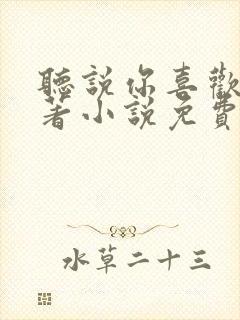 聽説你喜歡
著小説免費
水草二十三